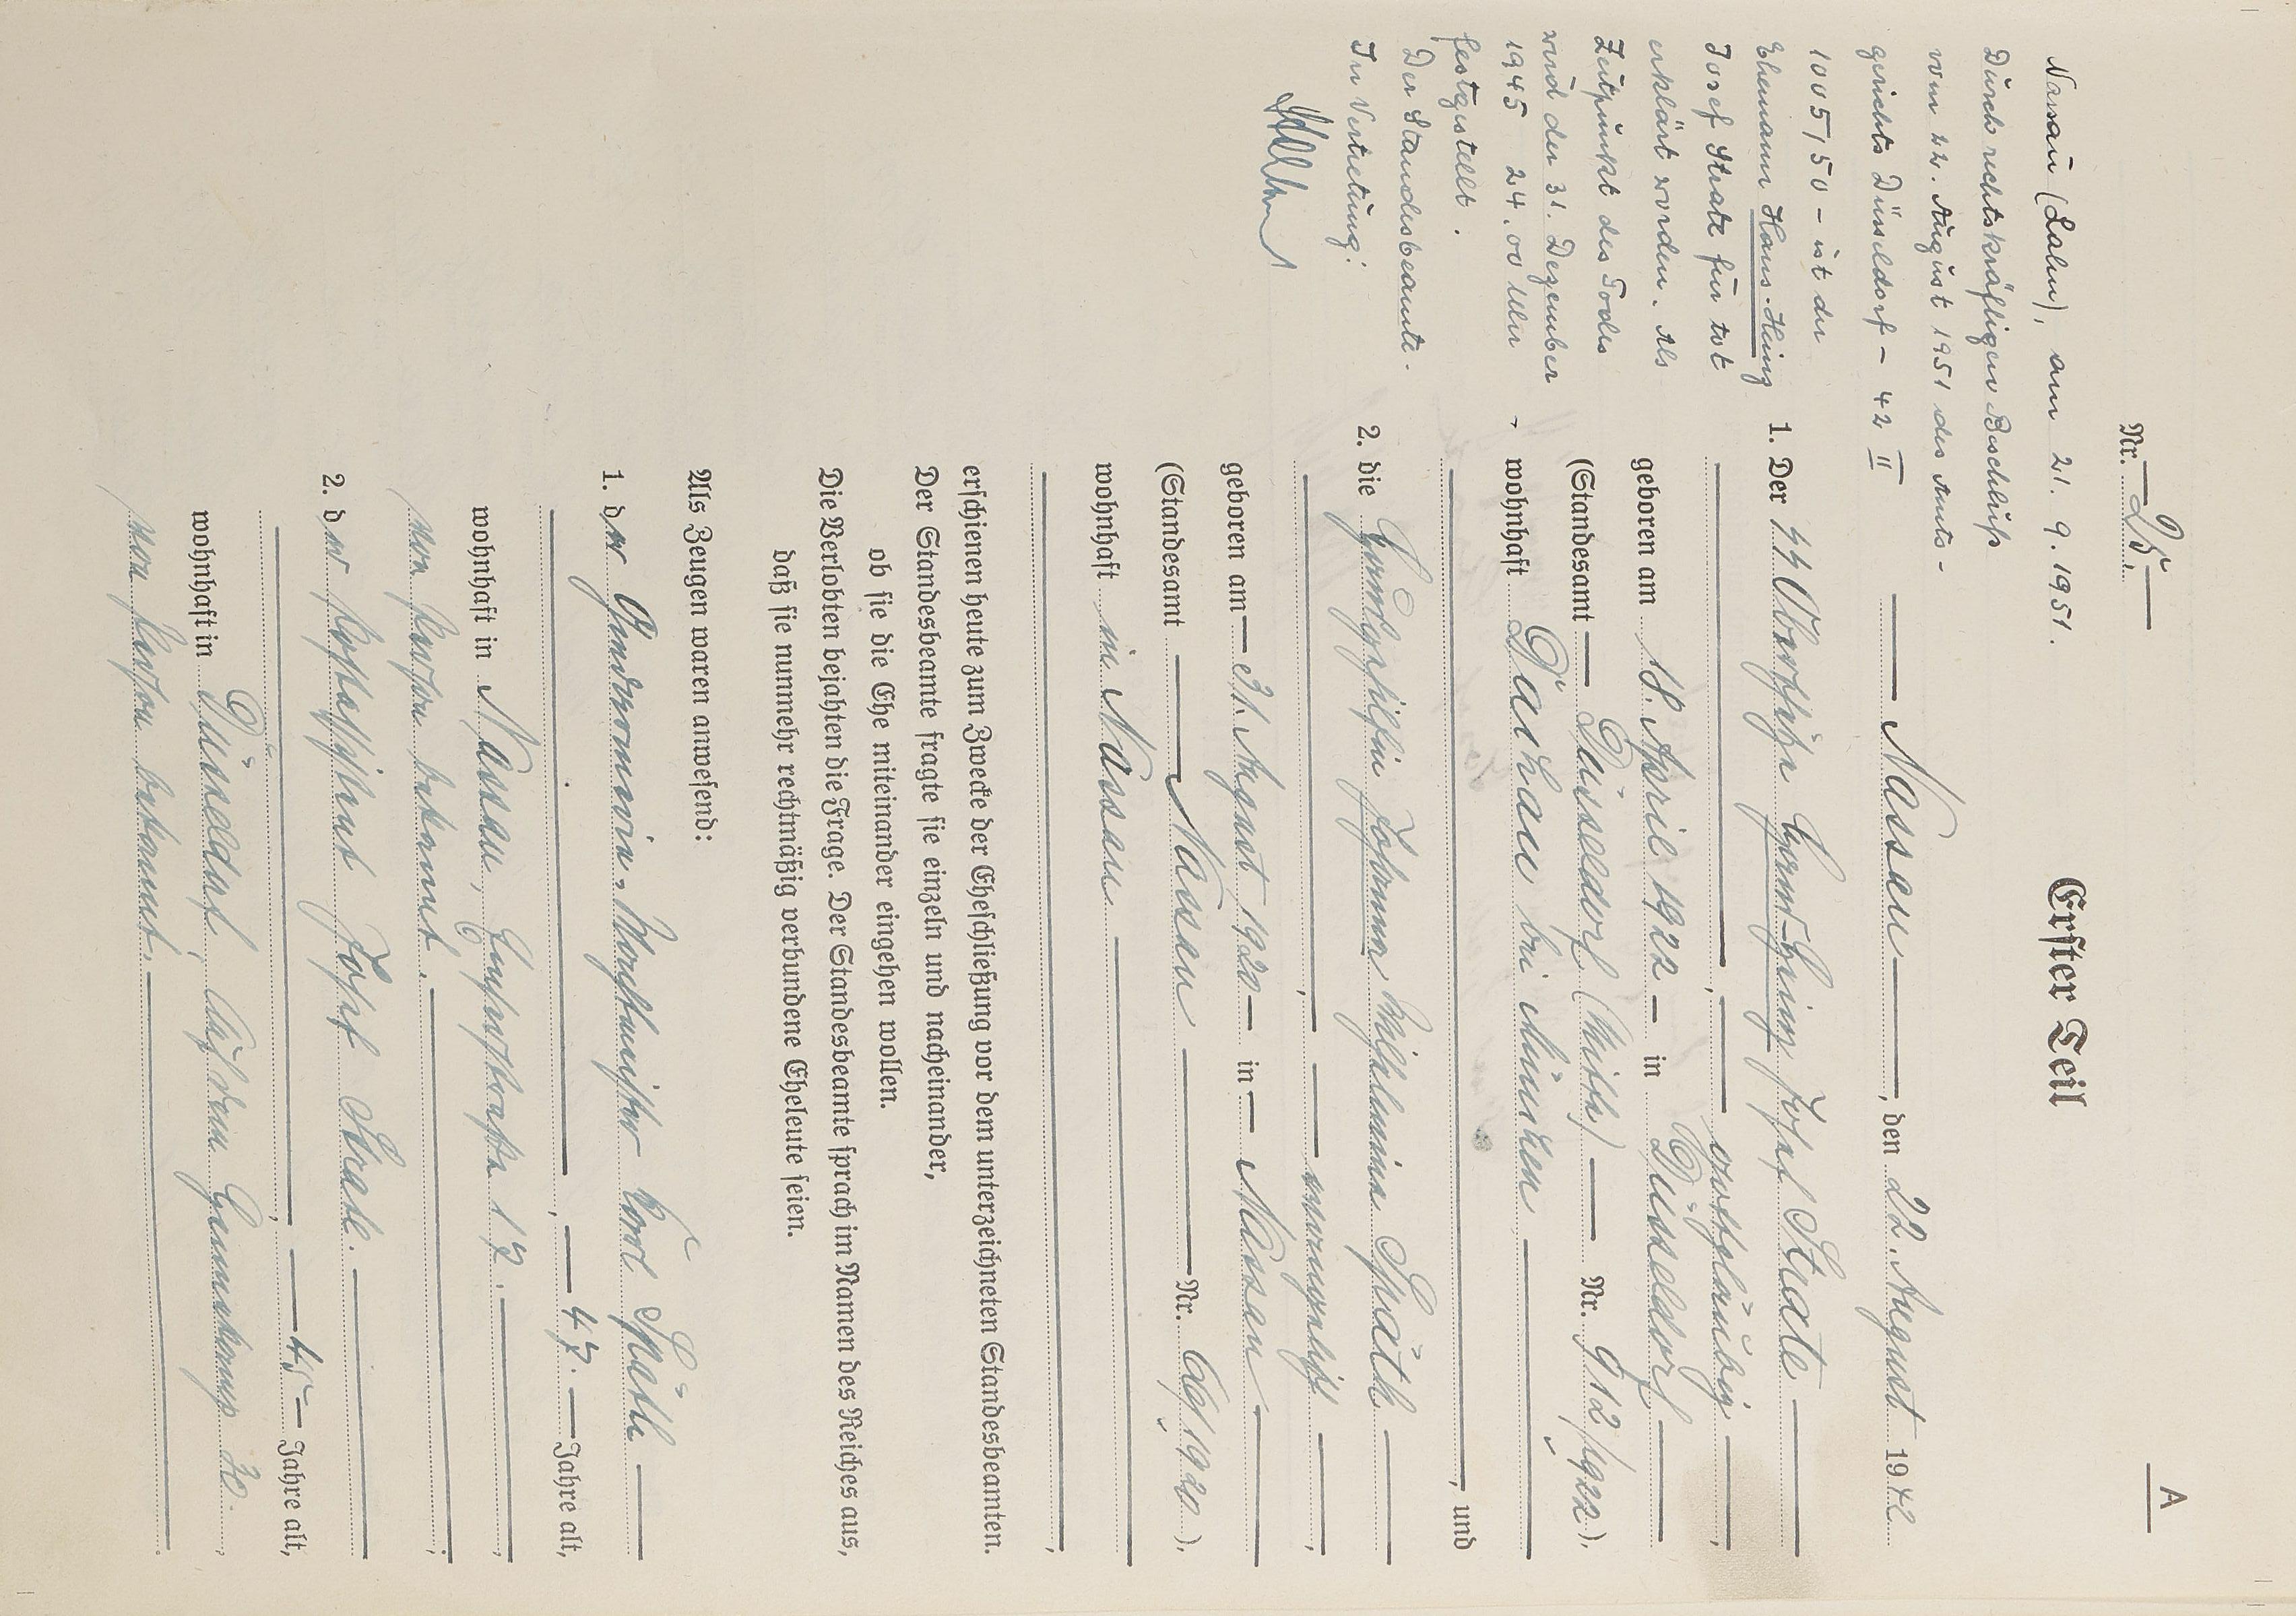 A
Nr. 25.
Erster Teil
Nassau, den 22. August 1942
1. Der SS Oberschütze Hans-Heinz Josef Strate
, gottgläubig,
geboren am 18. April 1922 in Düsseldorf
(Standesamt Düsseldorf (Mitte) Nr. 912/1922),
wohnhaft Dachau bei München
, und
2. die Josefine Johanna Wilhelmina Späth
, evangelisch,
geboren am 31. August 1920 in Nassau
(Standesamt Nassau Nr. 69/1920),
wohnhaft in Nassau
,
erschienen heute zum Zwecke der Eheschließung vor dem unterzeichneten Standesbeamten.
Der Standesbeamte fragte sie einzeln und nacheinander,
ob sie die Ehe miteinander eingehen wollen.
Die Verlobten bejahten die Frage. Der Standesbeamte sprach im Namen des Reiches aus,
daß sie nunmehr rechtmäßig verbundene Eheleute seien.
Als Zeugen waren anwesend:
1. der Karl Späth
, 47. Jahre alt,
wohnhaft in Nassau, 17.,
von Person bekannt.;
2. der Josef Strate.
, 45 Jahre alt,
wohnhaft in Düsseldorf, Auf dem 30.,
von Person bekannt.
Nassau (Lahn), am 21. 9. 1951.
Durch rechtskräftigen Beschluß
vom 22. August 1951 des Amts-
gerichts Düsseldorf - 42 II
1005/50 - ist der
Ehemann Hans-Heinz
Josef Strate für tot
erklärt worden. Als
Zeitpunkt des Todes
wird der 31. Dezember
1945 24.00 Uhr
festgestellt.
Der Standesbeamte.
In Vertretung: